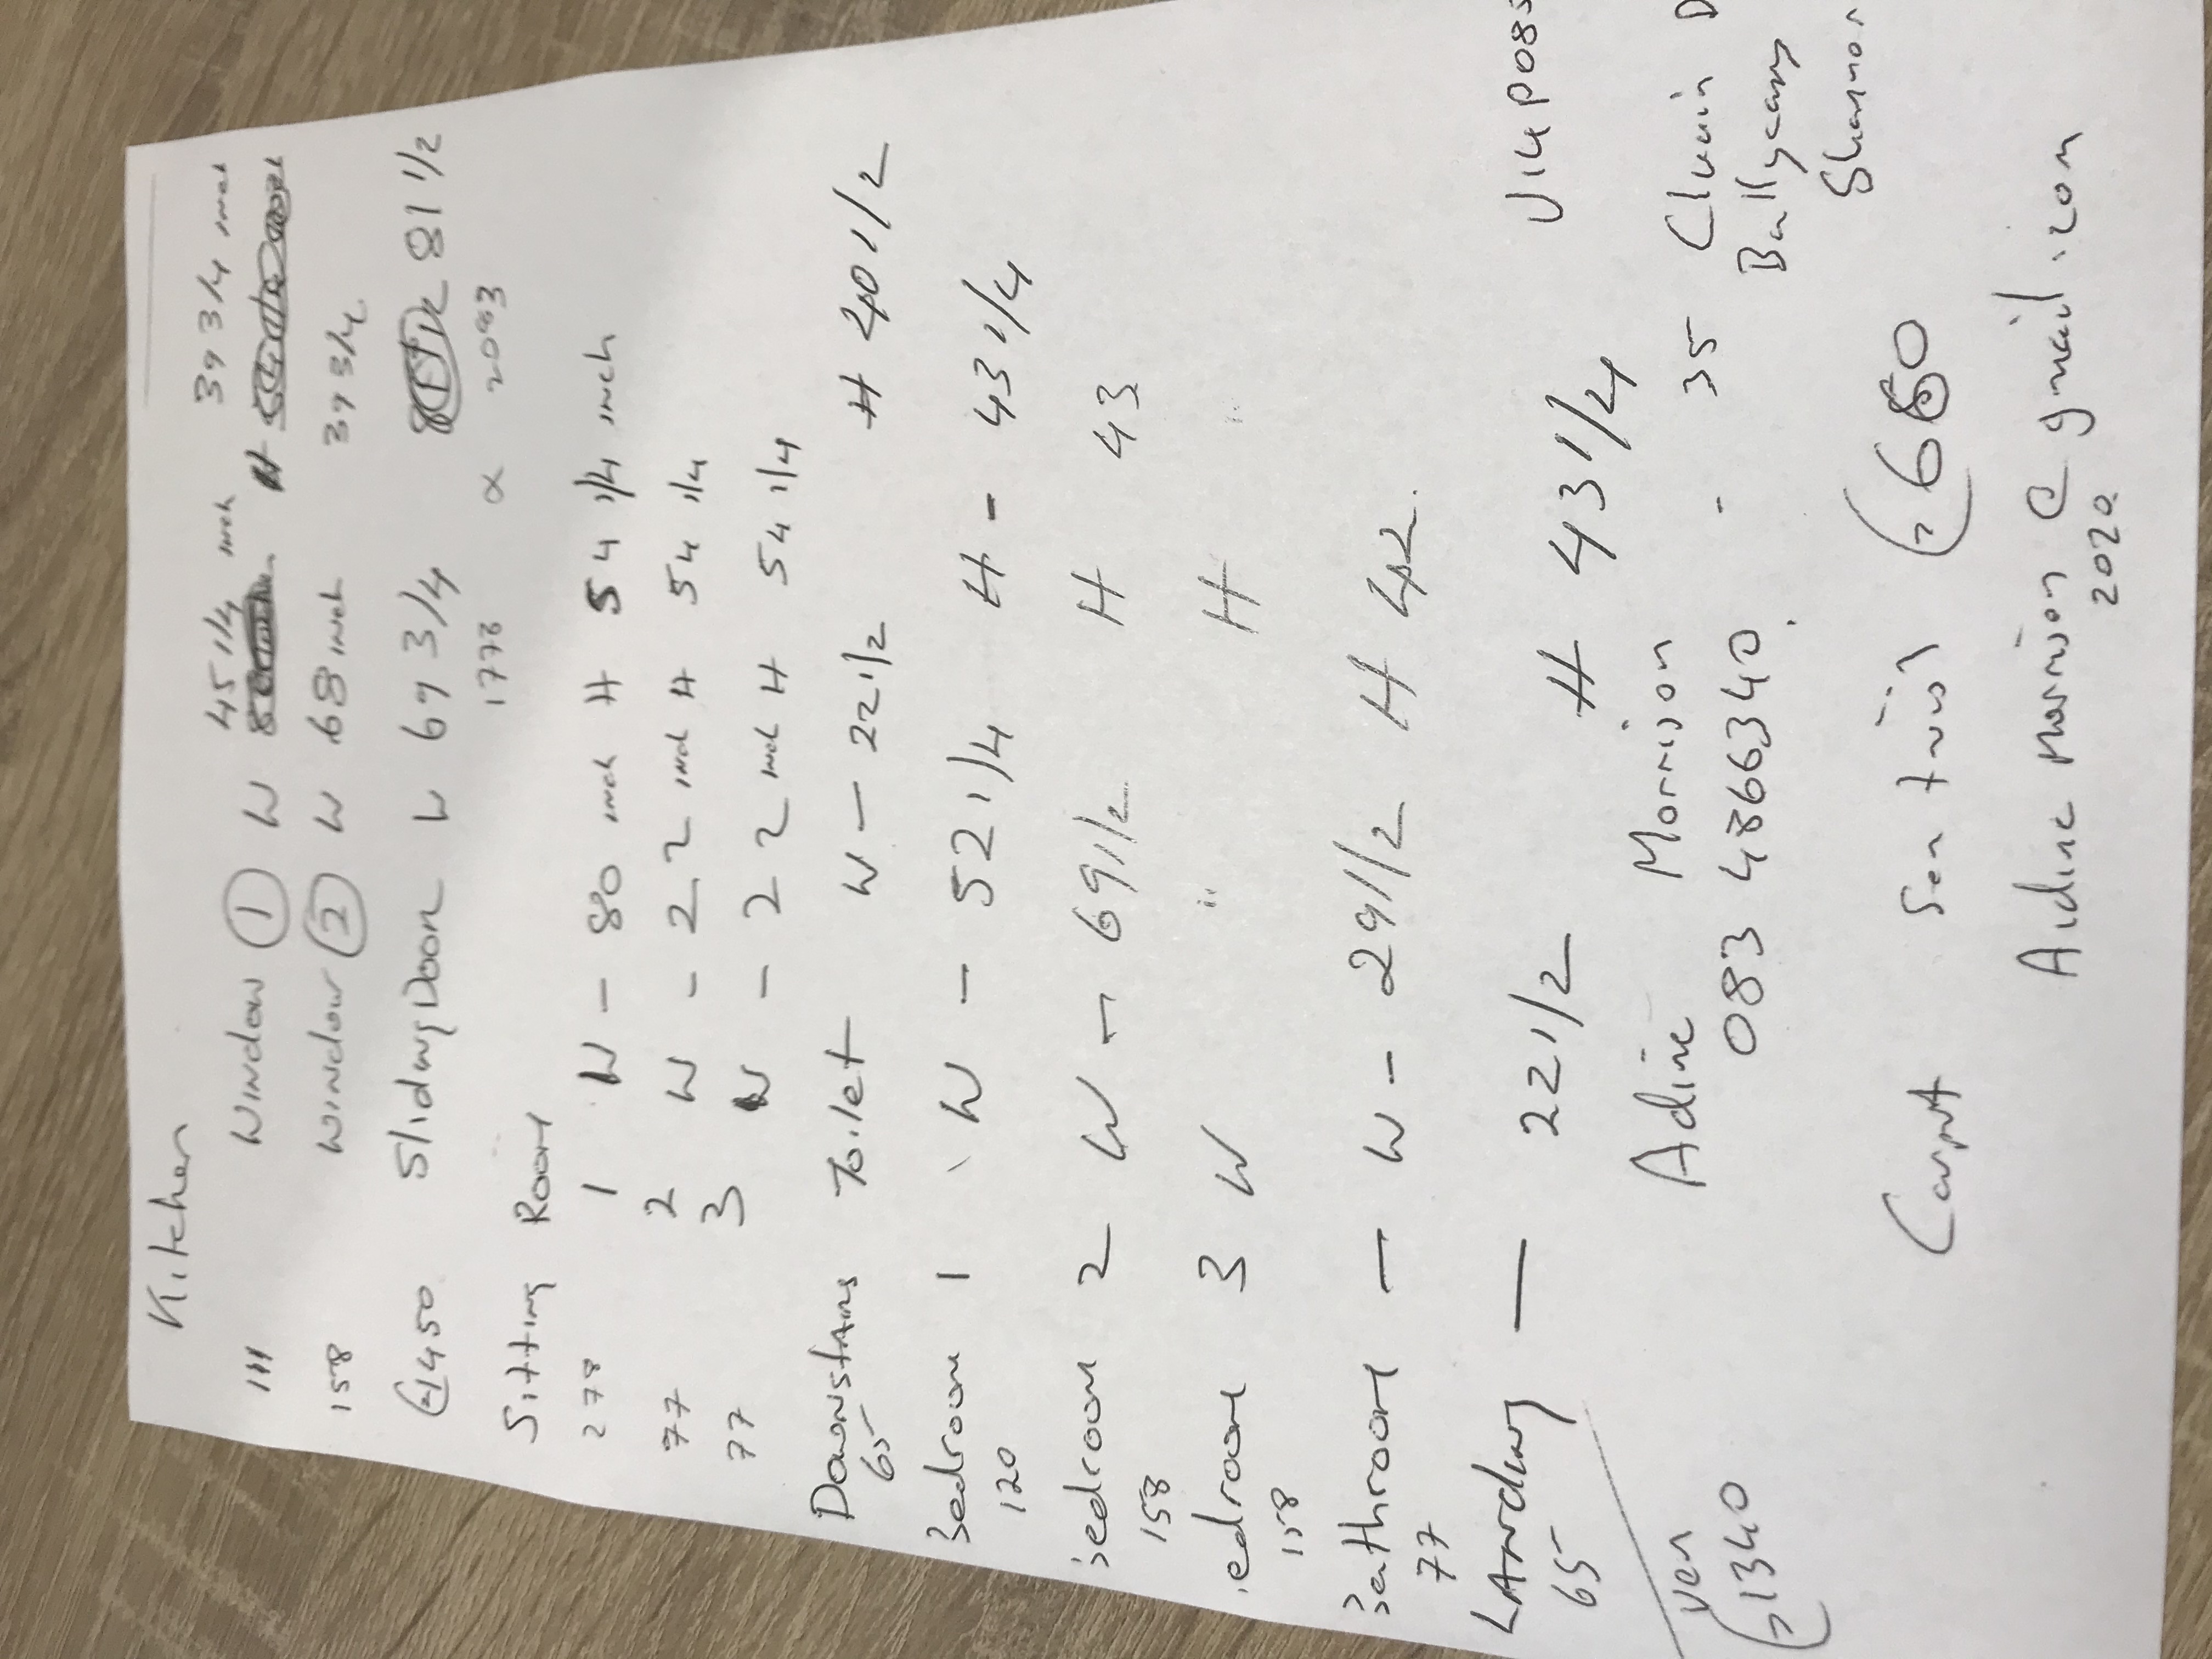 Kitchen
111 Window 1 W 45 1/4 inch 39 3/4 inch
158 Window 2 W 68 inch 39 3/4
€1450 Sliding Door W 69 3/4 81 1/2
1773 x 2083
Sitting Room
278 1 W - 80 inch H 54 1/4 inch
77 2 W - 22 inch H 54 1/4
77 3 W - 22 inch H 54 1/4
Downstairs Toilet W - 22 1/2 H 40 1/2
65
Bedroom 1 W - 52 1/4 H - 43 1/4
120
Bedroom 2 W - 69 1/2 H 43
158
edroom 3 W " H "
158
Bathroom - W - 29 1/2 H 42.
77
Landing - 22 1/2 H 43 1/4
65
V14 P08
Ven
€1340
Adine Morrison - 35 Cluain D
083 4866340. Ballycasey
Shannon
Carpet €680
Aidine Morrison @ gmail.com
2020